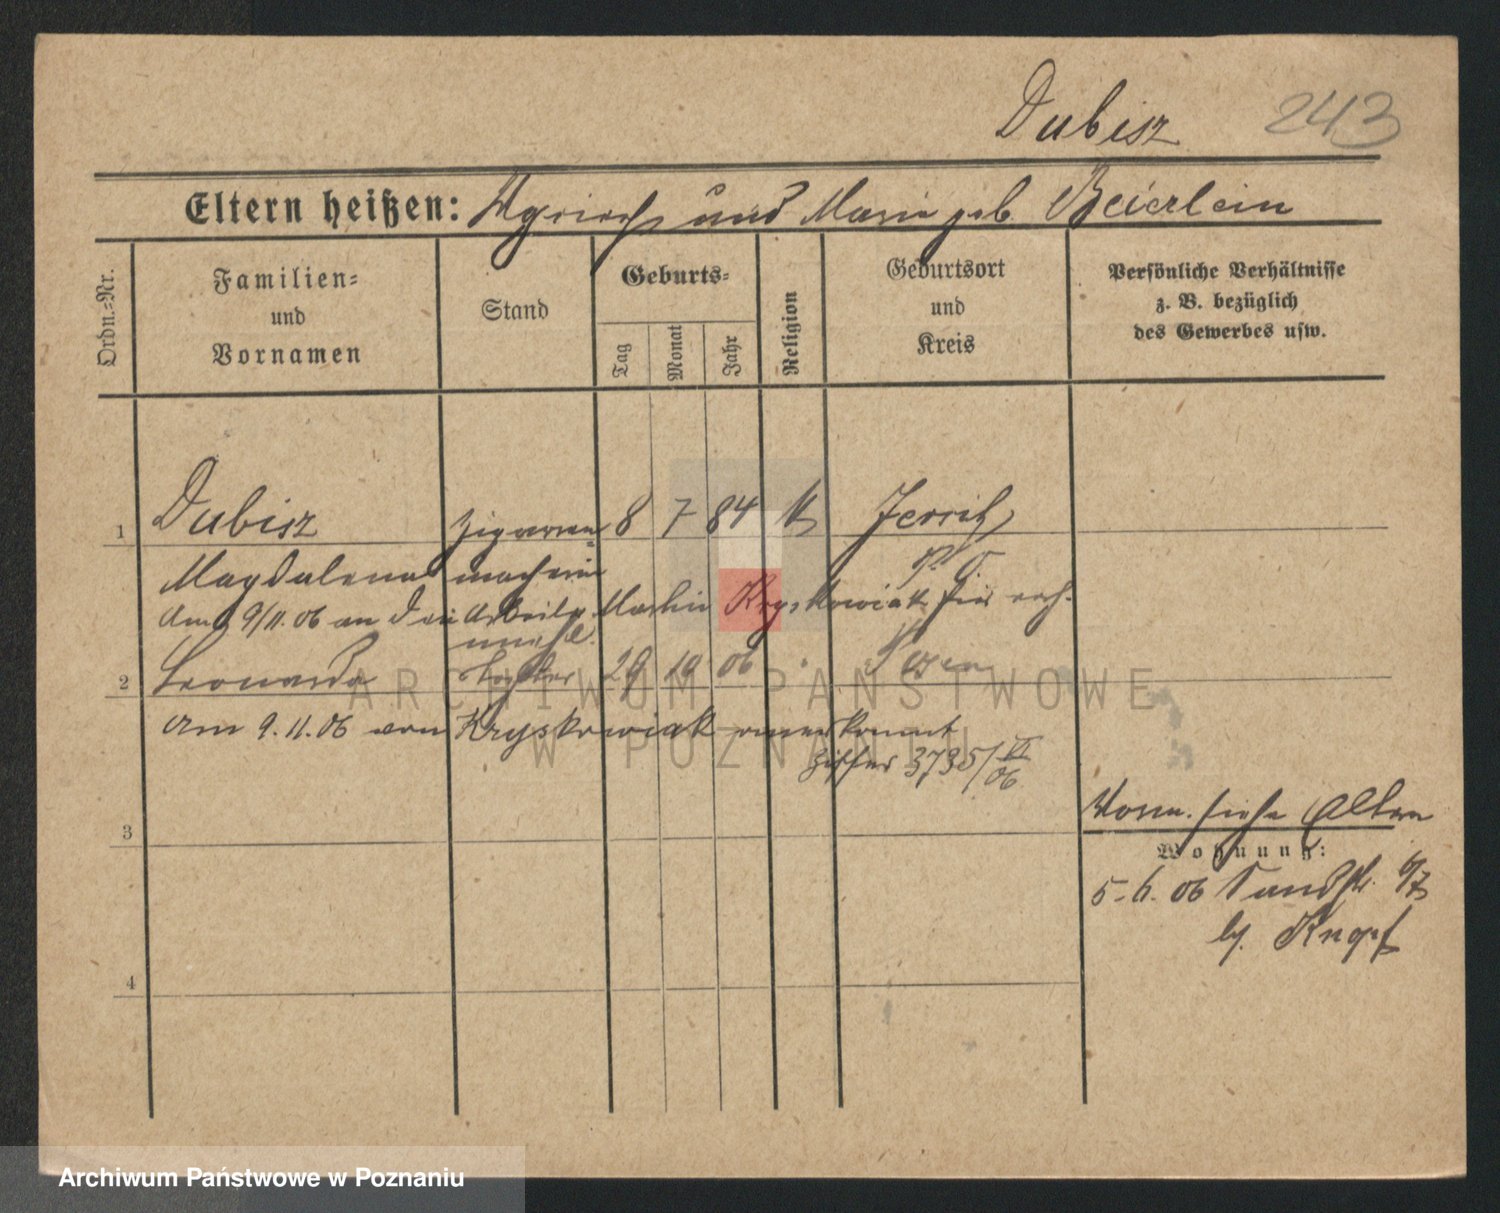 Dubisz 243
Eltern heißen: und Marie geb. Beierlein
Ordn.-Nr.
Familien-
und
Vornamen
Stand
Geburts-
Tag
Monat
Jahr
Religion
Geburtsort
und
Kreis
Persönliche Verhältnisse
z. B. bezüglich
des Gewerbes usw.
1 Dubisz Zigarren= 8 7 84 k Jerzitz
Magdalena macherin
Am 9/11. 06 an den Arbeiter Martin Kryskowiak hier verh.
unehel.
2 Leonarda Tochter 29 10 06 Posen
Am 9. 11. 06 von Kryskowiak anerkannt
Ziffer 3735/VI 06
3
Vorw. siehe Eltern
Wohnung:
5. 6. 06 Sandstr.
by. Knopf
4
ARCHIWUM PAŃSTWOWE
W POZNANIU
Archiwum Państwowe w Poznaniu